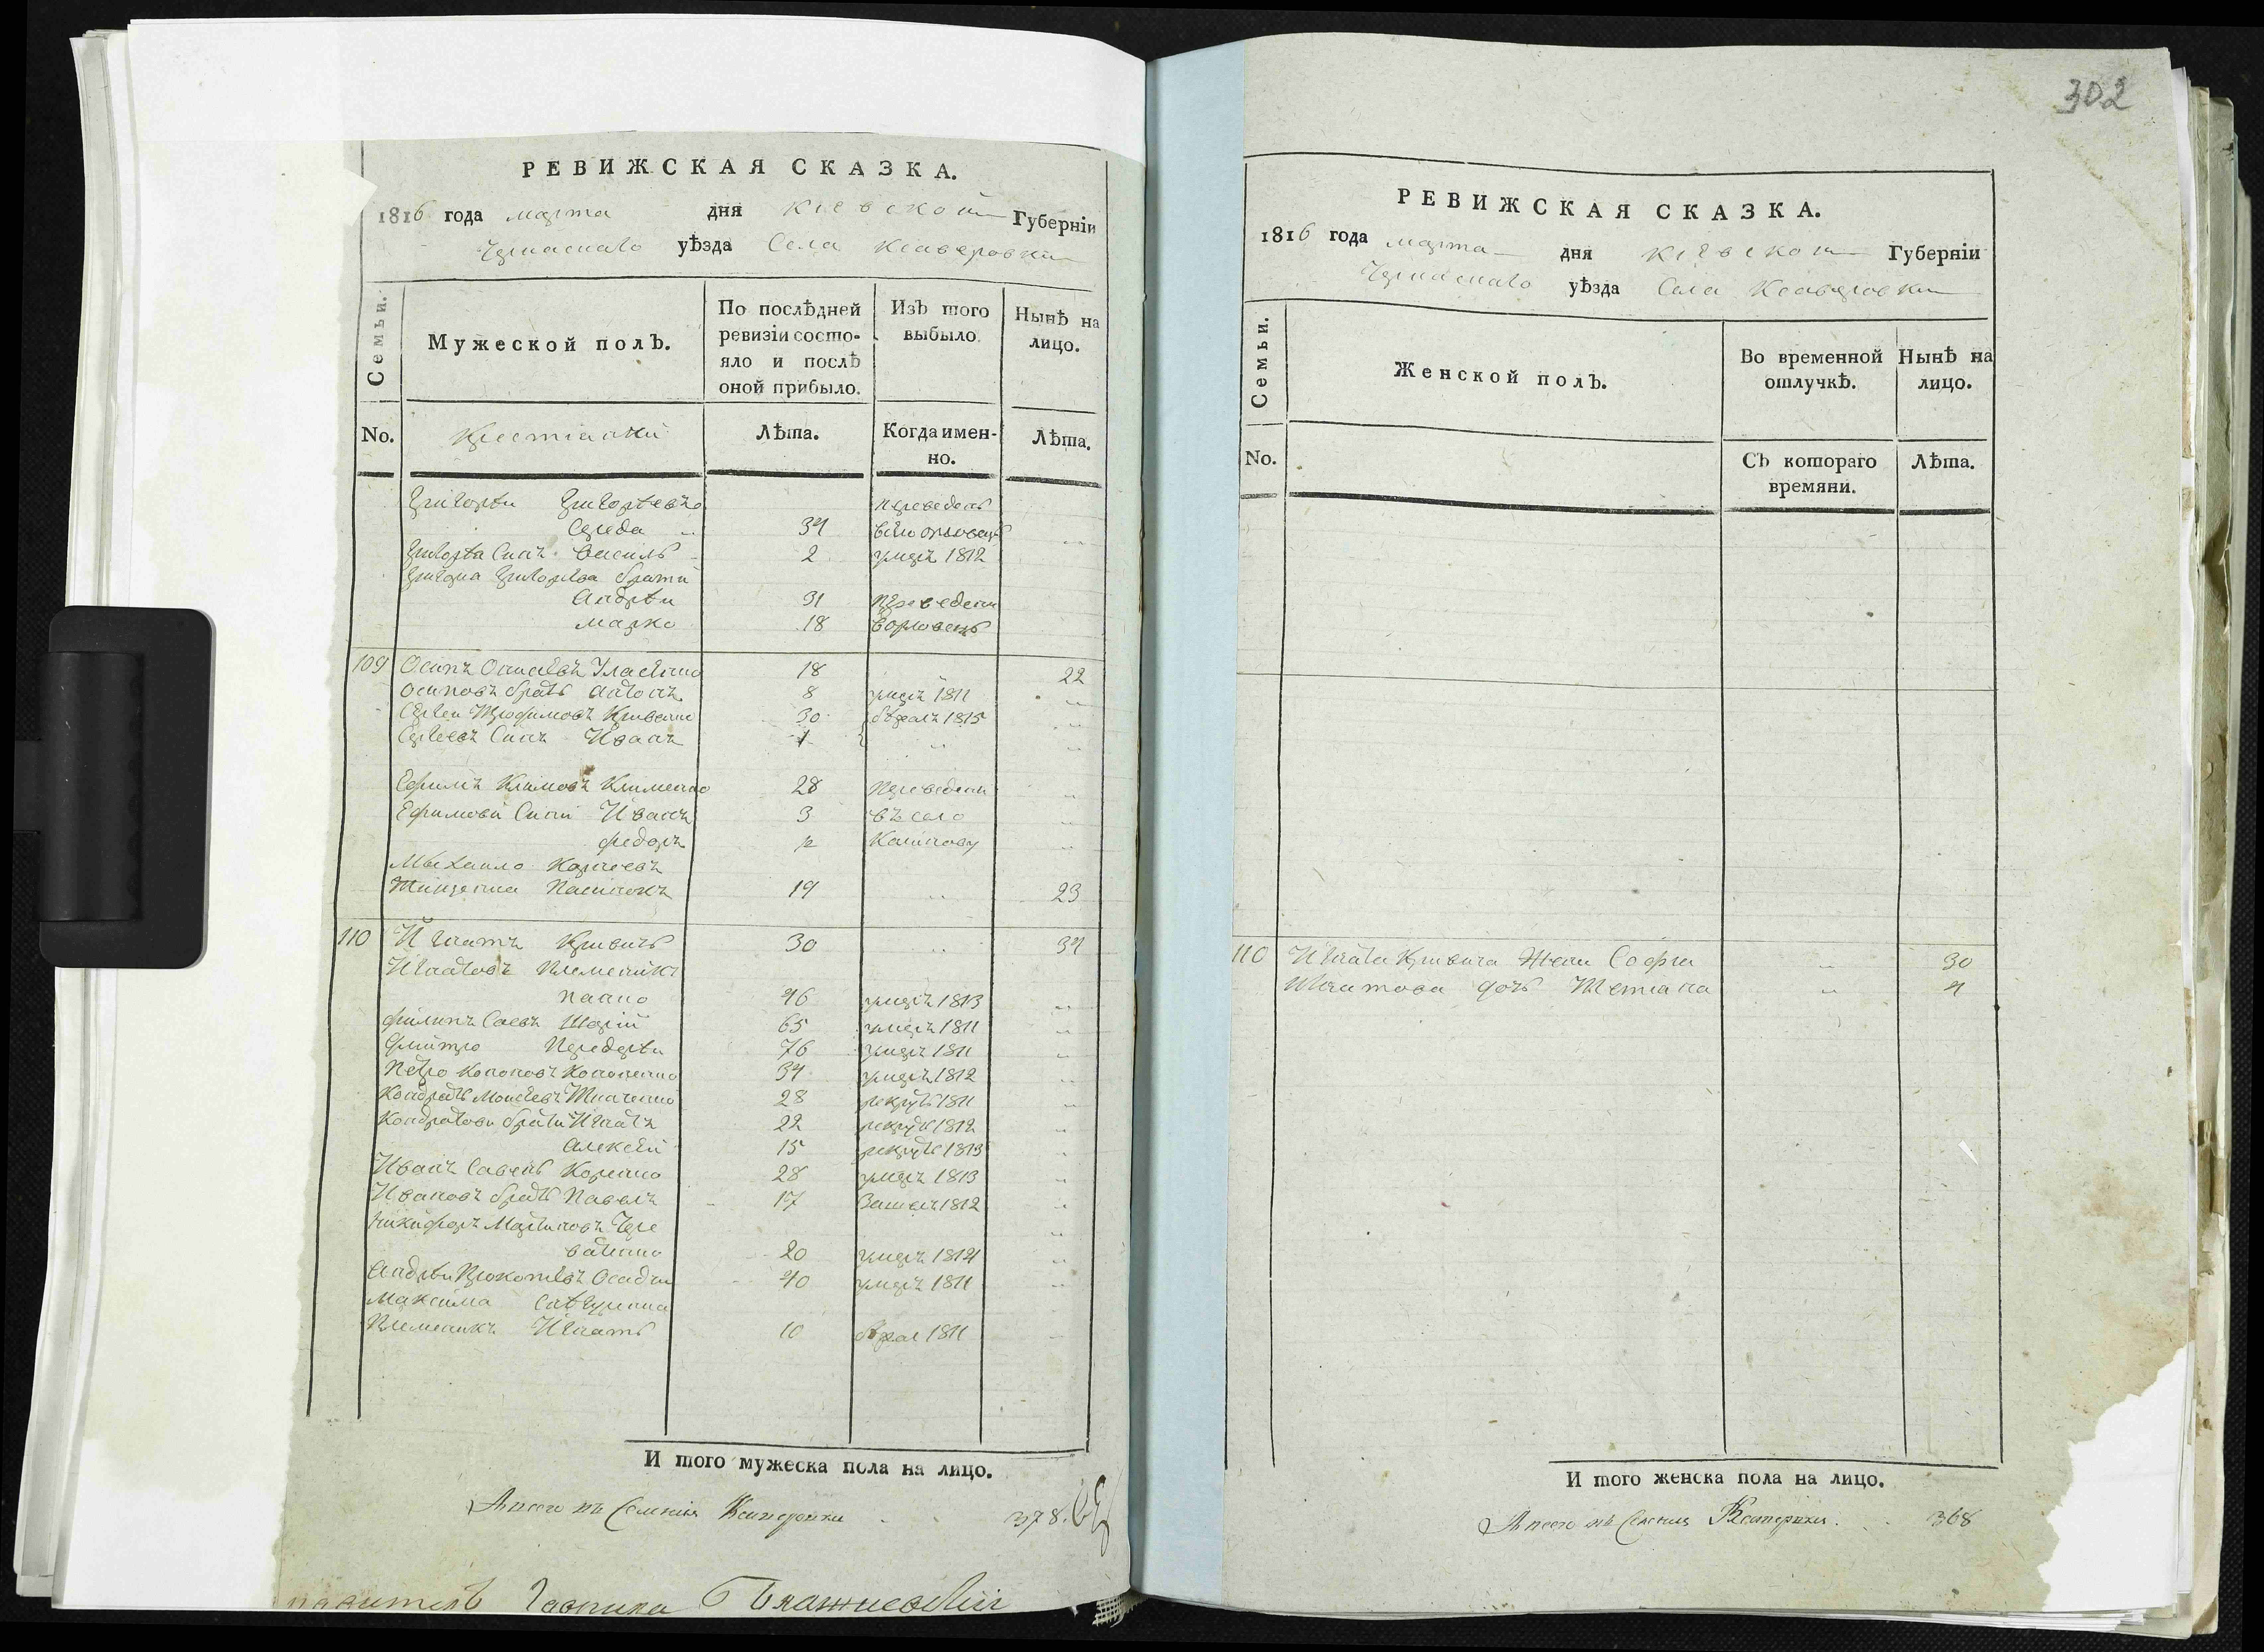 РЕВИЖСКАЯ СКАЗКА.
1816 года марта дня Киевской Губерніи
Черкаскаго уѣзда Села Ксаверовки
Семьи.
Мужеской полЪ.
По послѣдней ревизіи состояло и послѣ оной прибыло.
ИзЪ того выбыло.
Нынѣ на лицо.
No.
Крестіяніи
Лѣта.
Когда именно.
Лѣта.
Григорѣи Григорѣевъ переведенъ
Середа 34
Григорѣа Синъ Василь 2 умеръ 1812
Григориа Григорѣва брати
Андрѣи 31 Переведени
Марко 18 Ворловецъ
109 Осипъ 18 22
Осиповъ братъ Антонъ 8 умеръ 1811
Сергеи Трофимовъ 30 бѣжалъ 1815
Сергеевъ Синъ Иванъ 1
Ефимъ Климовъ Клименко 28 Переведени
Ефимови Сини Иванъ 3 въ село
Федоръ
Михаило Корнеевъ
Пасинокъ 19 23
110 Игнатъ Кривичъ 30 34
Игнатовъ Племеникъ
46 умеръ 1813
Филипъ Саевъ 65 умеръ 1811
Дмитро Передерѣи 76 умеръ 1811
Петро Кононовъ Кононенко 34 умеръ 1812
Кондратъ Моисеевъ Ткаченко 28 рекрутъ 1811
Кондратови брати Игнатъ 22 рекрутъ 1812
Алексѣи 15 рекрутъ 1813
Иванъ 28 умеръ 1813
Ивановъ братъ Павелъ 17 1812
Никифоръ Мартиновъ Чере
ватенко 20 умеръ 1814
Андрѣи Прокопѣвъ 40 умеръ 1811
Максима
Племеникъ Игнатъ 10 бѣжал 1811
И того мужеска пола на лицо.
А всего въ Селении Ксаверовки 378.
302
РЕВИЖСКАЯ СКАЗКА.
1816 года марта дня Киевской Губерніи
Черкаскаго уѣзда Села Ксаверовки
Семьи.
Женской полЪ.
Во временной отлучкѣ.
Нынѣ на лицо.
No.
СЪ котораго времяни.
Лѣта.
110 Игната Кривича Жена Софиа 30
Игнатова дочъ Тетиана 4
И того женска пола на лицо.
А всего въ Селении Ксаверовки. 368